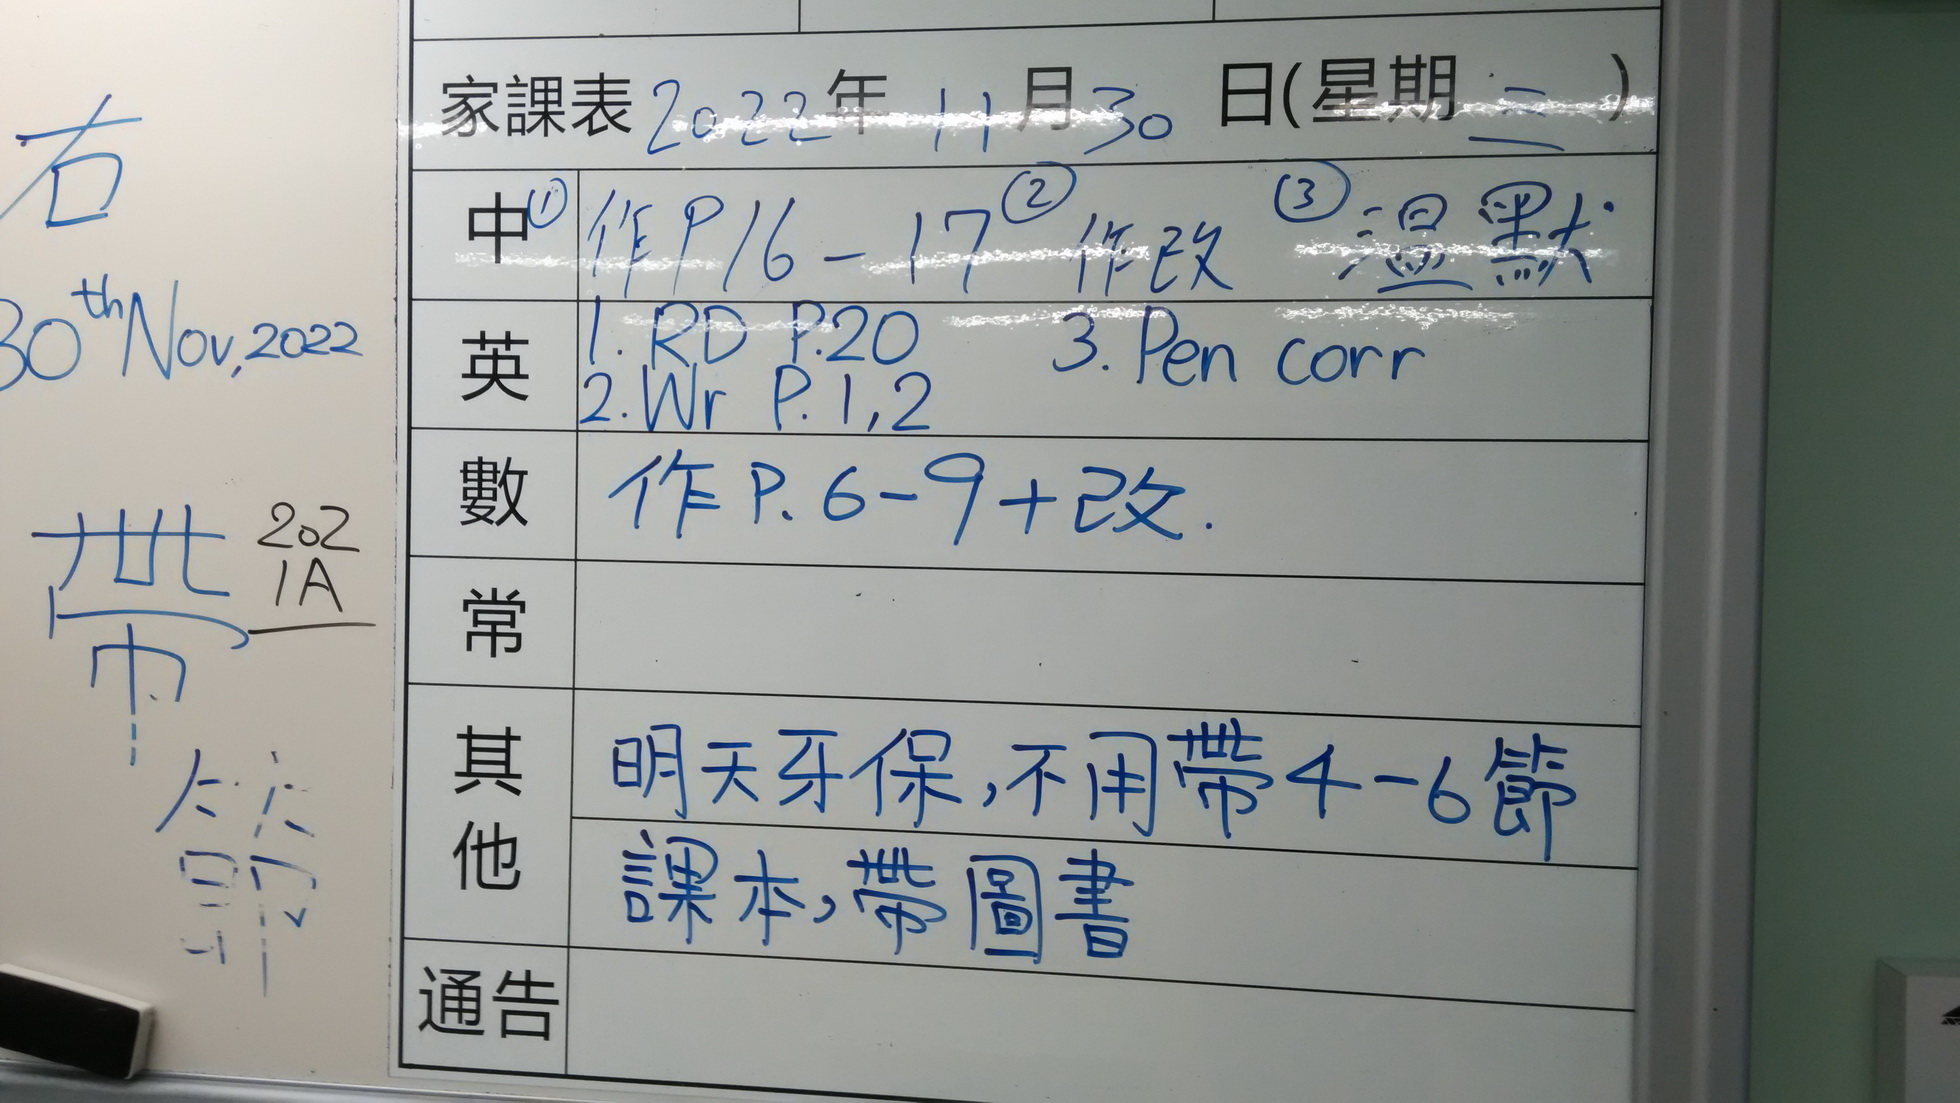 右
30th Nov, 2022
帶
202
1A
節
家課表 2022年 11月30 日(星期 三 )
中 ① 作P16-17 ② 作改 ③ 溫默
英 1. RD P.20 3. Pen corr
2. Wr P.1,2
數 作P.6-9+改.
常
其他 明天牙保,不用帶4-6節
課本,帶圖書
通告